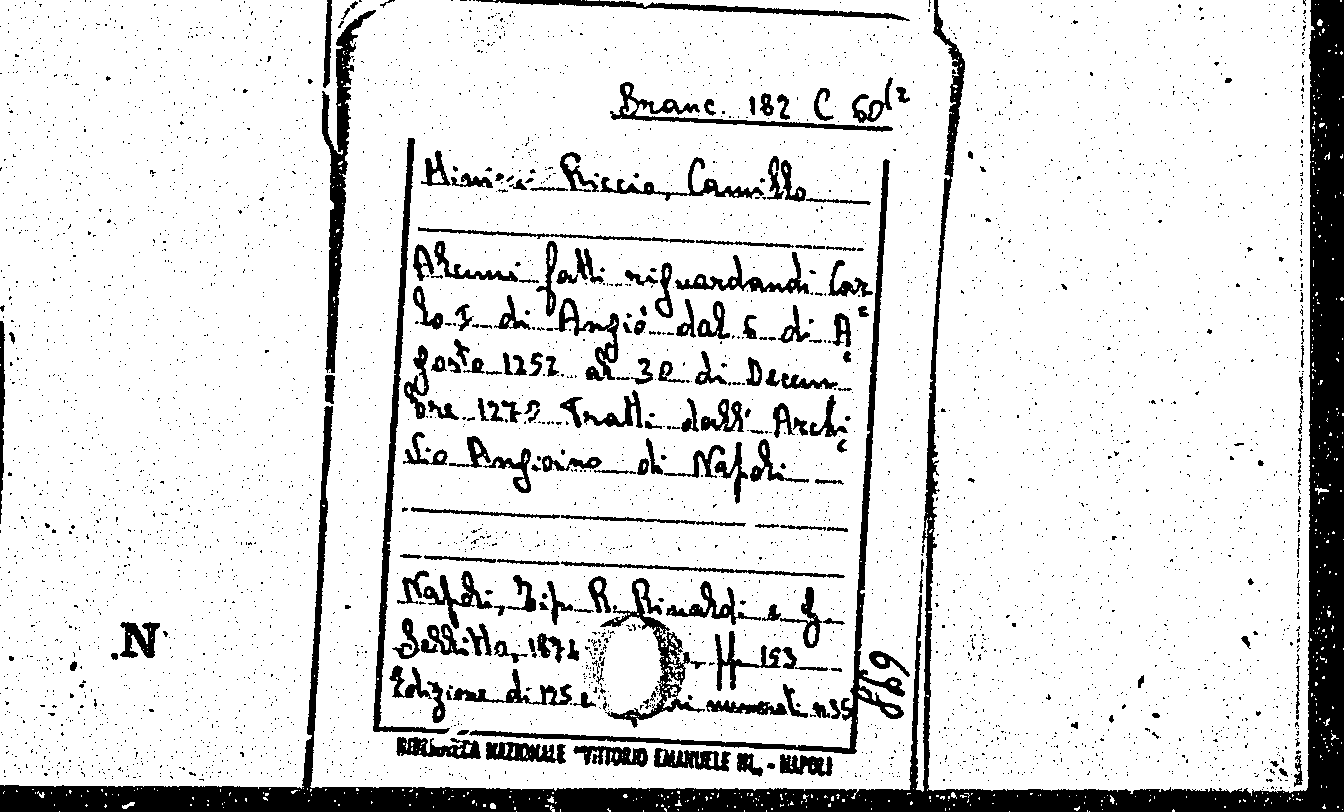 Branc. 182 C 60(2
Minieri Riccio, Camillo
Alcuni fatti riguardandi Car
lo I di Angiò dal 6 di A=
gosto 1252 al 30 di Decem=
bre 1270 Tratti dall' Archi=
vio Angioino di Napoli
Napoli, Tip. R. Rinaldi e G.
Sellitto, 1874 pp. 153
Edizione di 125 e ri numerati n. 35
BIBLIOTECA NAZIONALE "VITTORIO EMANUELE III„ - NAPOLI
.N